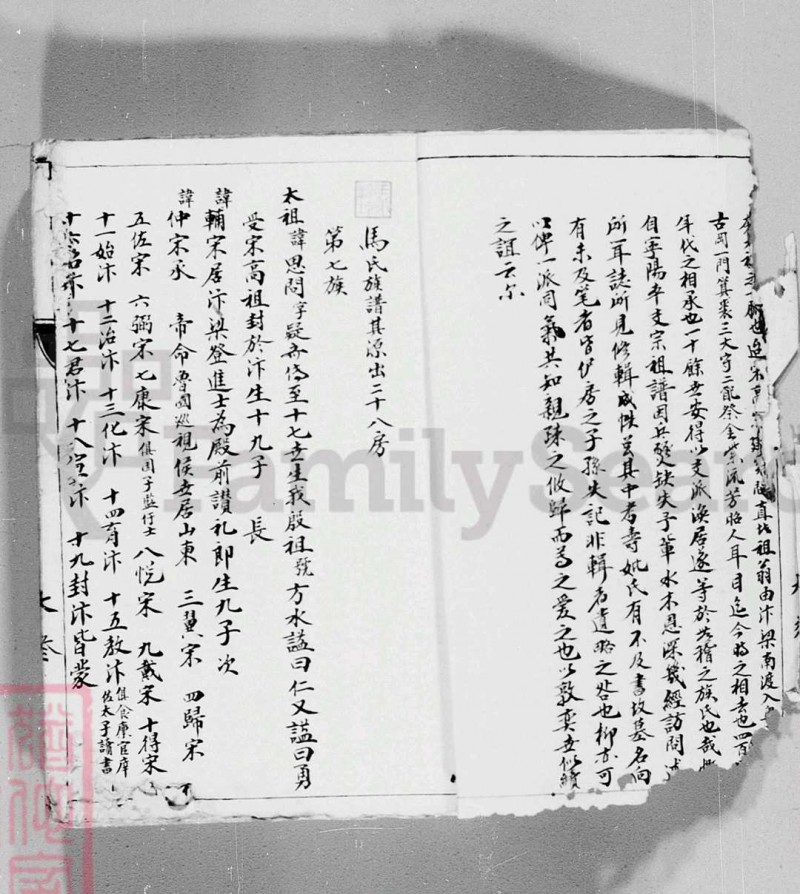 古岡一門箕裘三大字二配祭金紫流芳昭人耳目迄今時之相去也四百
年代之相承也一十餘世安得以支派渙居遂等於無稽之族氏也哉
自寧陽平支宗祖譜因兵燹缺失予輩水木恩深幾經訪問
所耳誌所見修輯成帙若其中考壽妣氏有不及書坟墓名向
有未及笔者皆伊房之子孫失記非輯者遺略之咎也抑亦可
以俾一派同氣共知親踈之攸歸而為之愛之也以敦奕世似續
之誼云尔
馬氏族譜其源出二十八房
第七族
太祖諱思問字疑斋傳至十七世生我殷祖號方水謚曰仁又謚曰勇
受宋高祖封於汴生十九子 長
諱輔宋居汴梁登進士為殿前讃礼郎生九子 次
諱仲宋承 帝命魯國巡視侯世居山東 三翼宋 四歸宋
五佐宋 六弼宋 七康宋俱国子监行士 八悦宋 九戴宋 十得宋
十一始汴 十二治汴 十三化汴 十四育汴 十五敖汴俱食廪官庠佐太子讀書
十七君汴 十八 汴 十九封汴皆蒙
FamilySearch